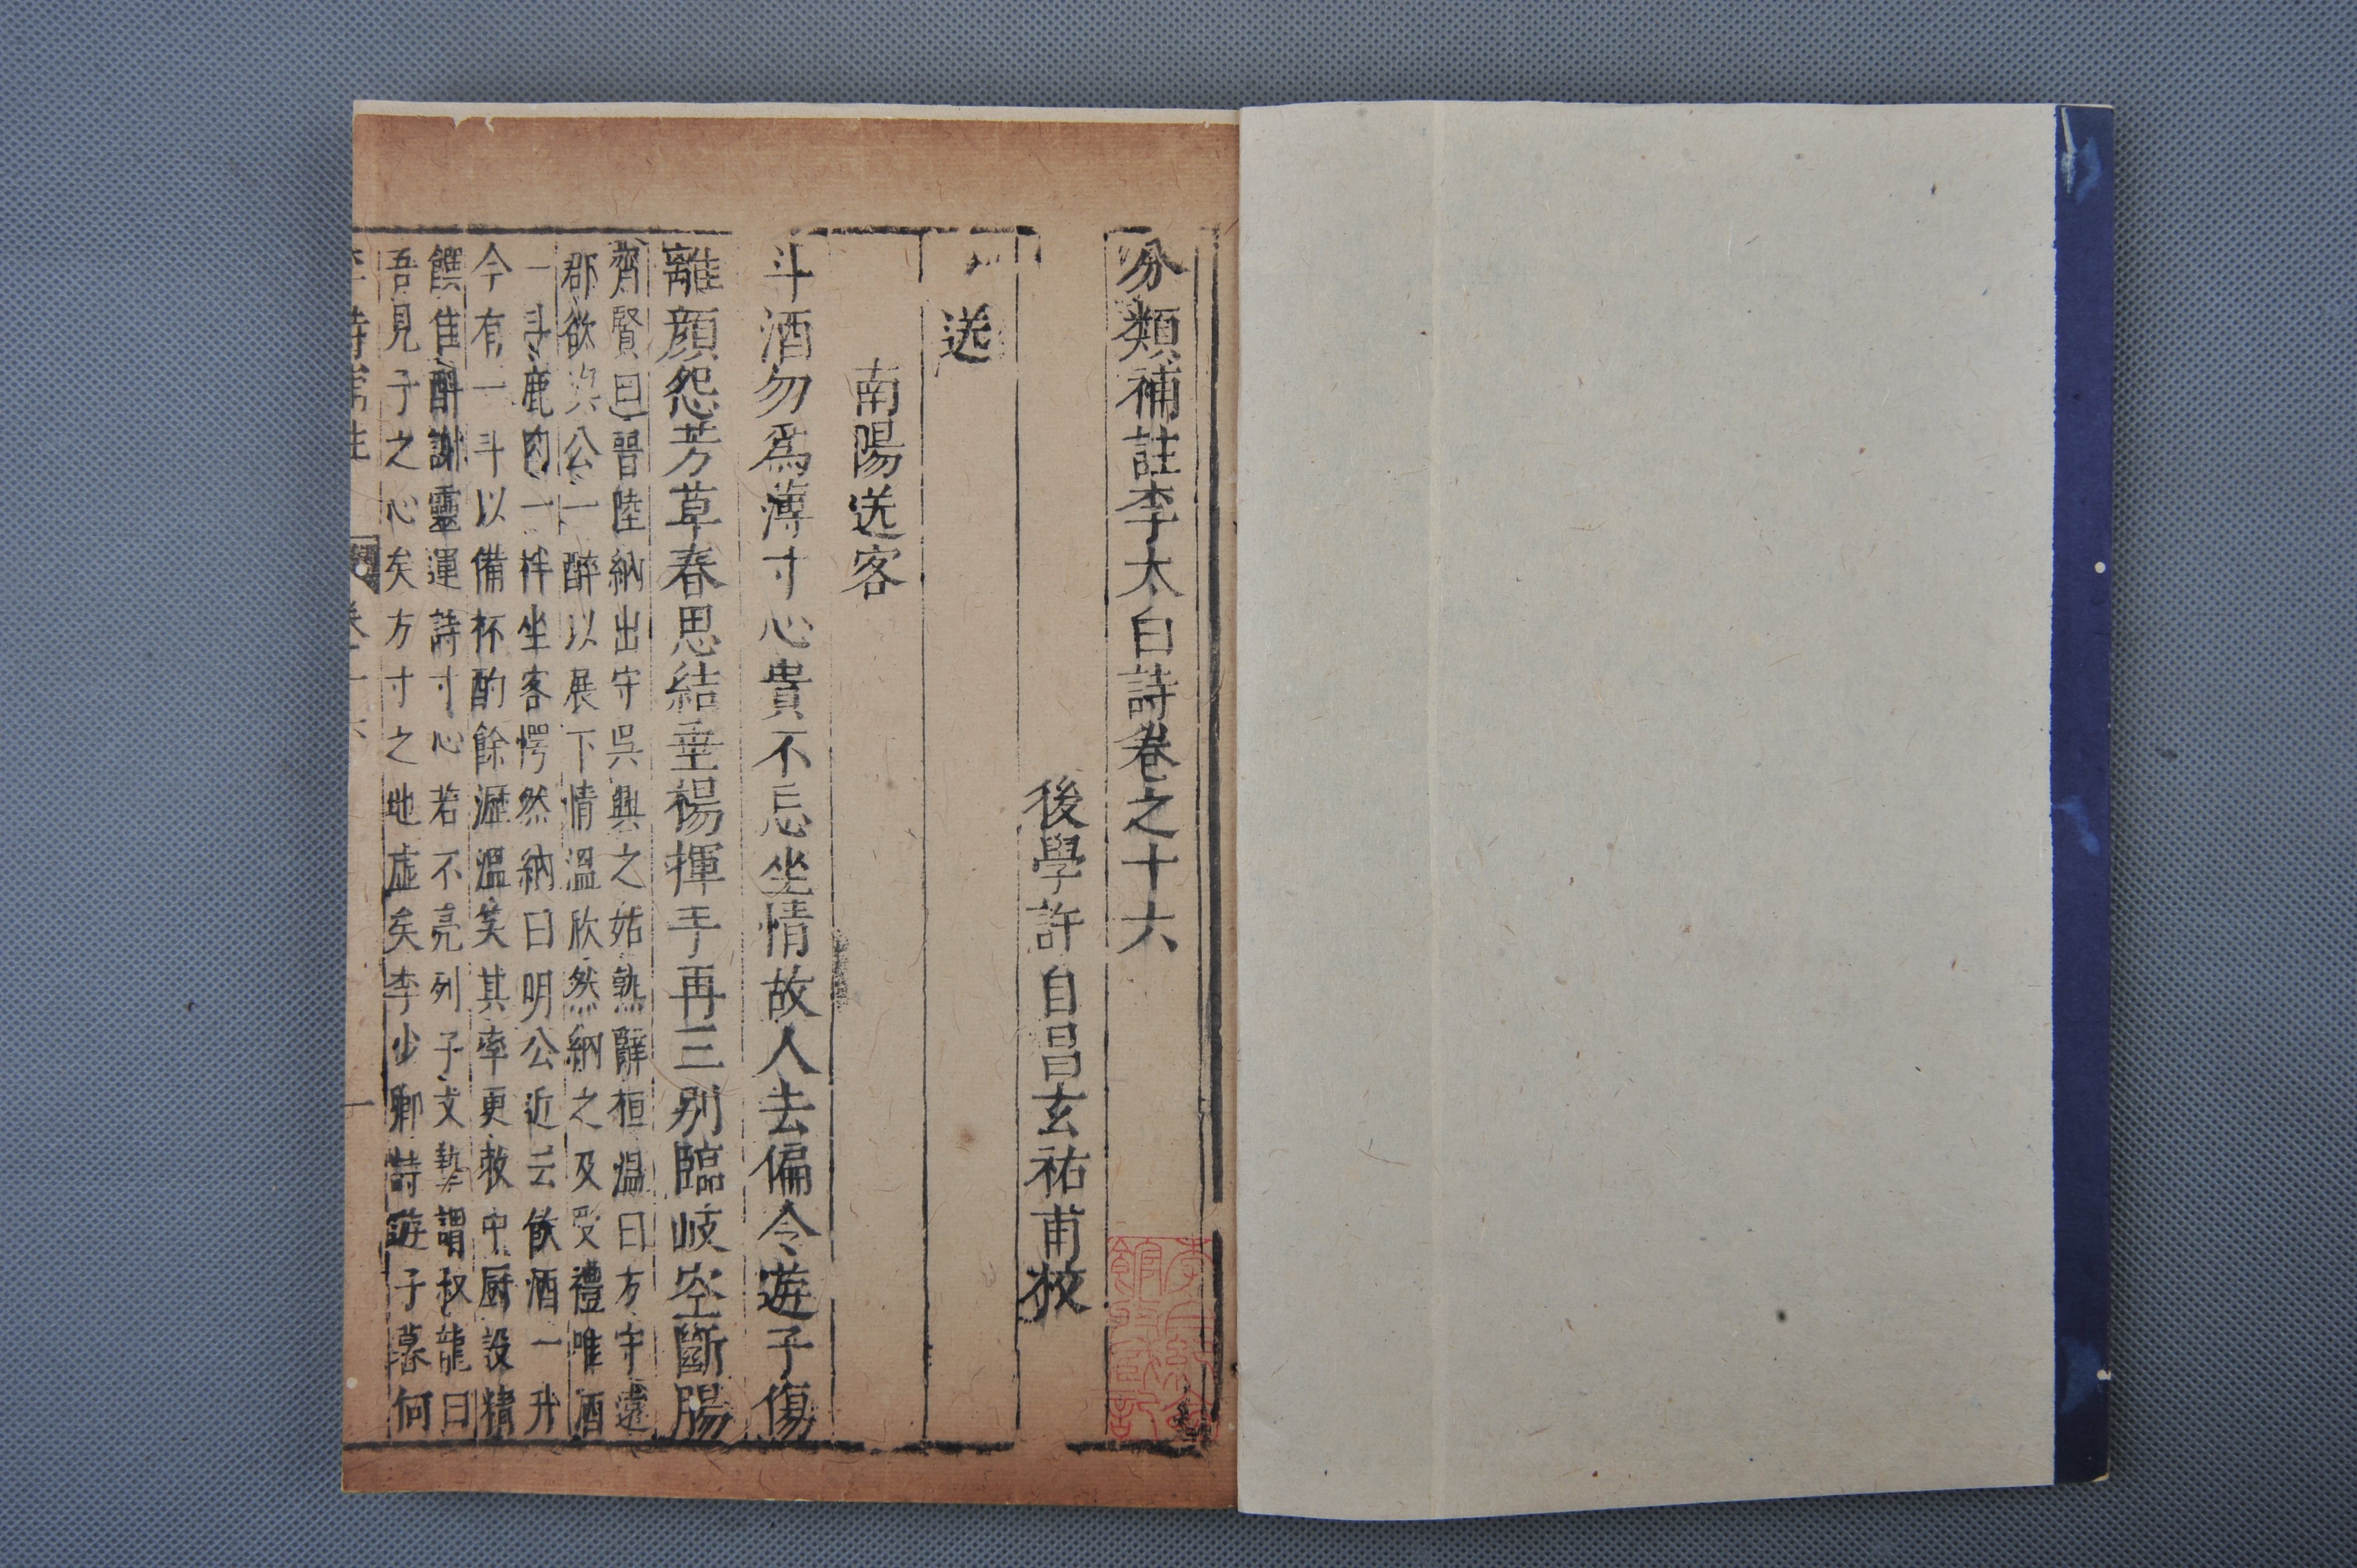 分類補註李太白詩卷之十六
後學許自昌玄祐甫校
送
南陽送客
斗酒勿爲薄寸心貴不忘坐惜故人去偏令遊子傷
離顔怨芳草春思結垂楊揮手再三别臨岐空斷腸
齊賢曰晉陸納出守吳興之姑孰辭桓温曰方守遠
郡欲與公一醉以展下情溫欣然納之及受禮唯酒
一斗鹿肉一柈坐客愕然納曰明公近云飲酒一升
今有一斗以備杯酌餘瀝溫笑其率更敕中厨設精
饌隹酣謝靈運詩寸心若不亮列子文摯謂叔龍曰
吾見子之心矣方寸之地虛矣李少卿詩遊子暮何